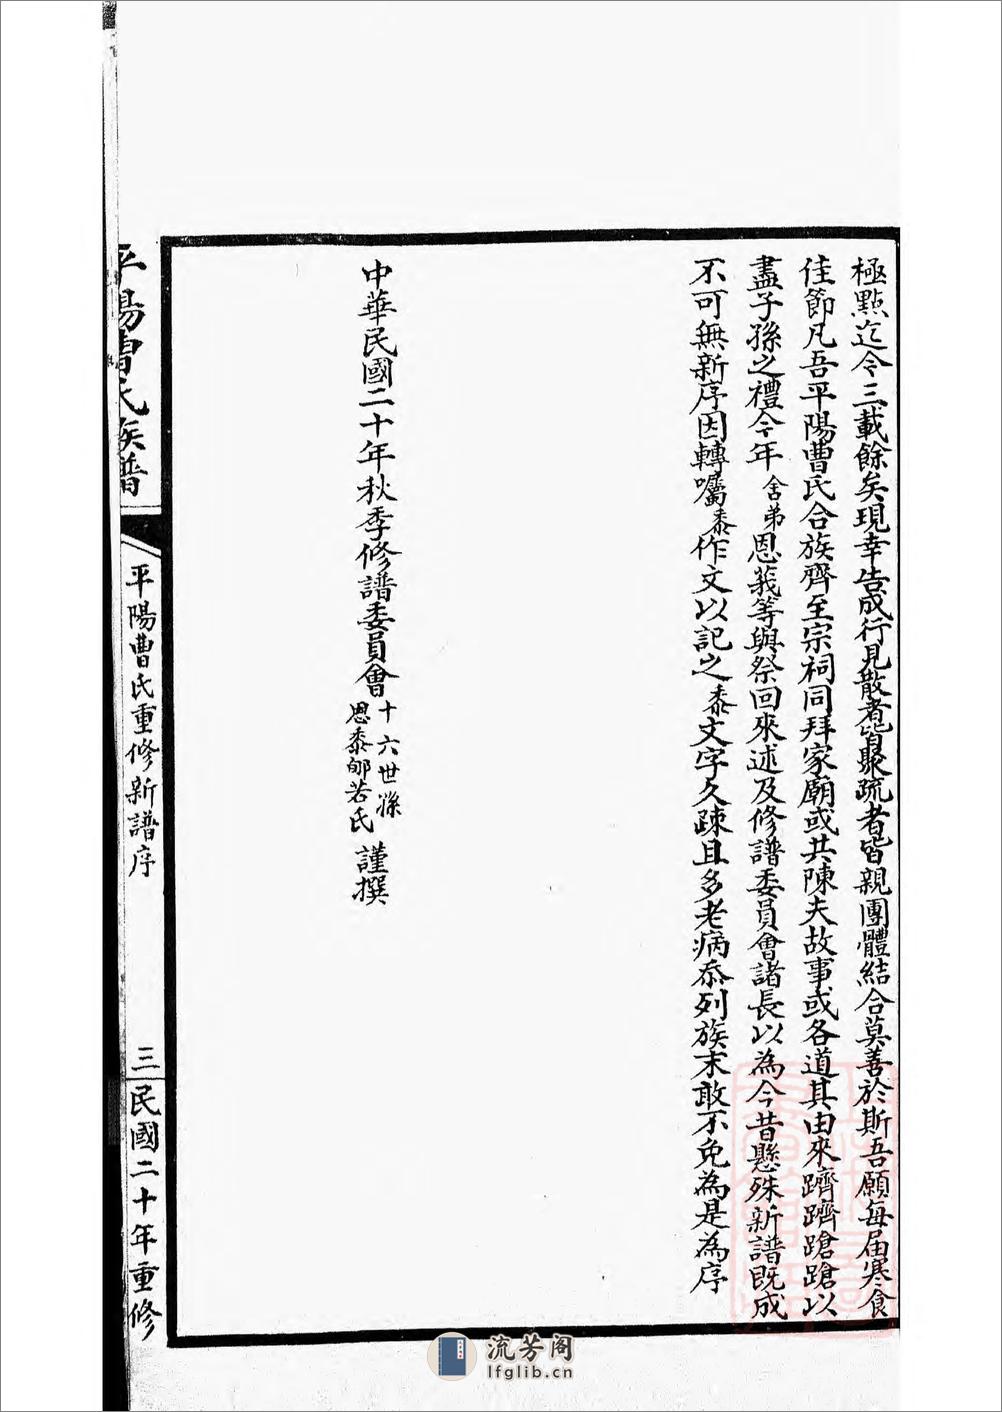 極點迄今三載餘矣現幸告成行見散者皆聚疏者皆親團體結合莫善於斯吾願每届寒食
佳節凡吾平陽曹氏合族齊至宗祠同拜家廟或共陳夫故事或各道其由來躋躋蹌蹌以
盡子孫之禮今年舍弟恩義等與祭回來述及修譜委員會諸長以為今昔懸殊新譜既成
不可無新序因轉囑泰作文以記之泰文字久疎且多老病忝列族末敢不免為是為序
中華民國二十年秋季修譜委員會十六世孫
恩泰郇若氏
謹撰
平陽曹氏族譜
平陽曹氏重修新譜序
三
民國二十年重修
流芳阁
lfglib.cn